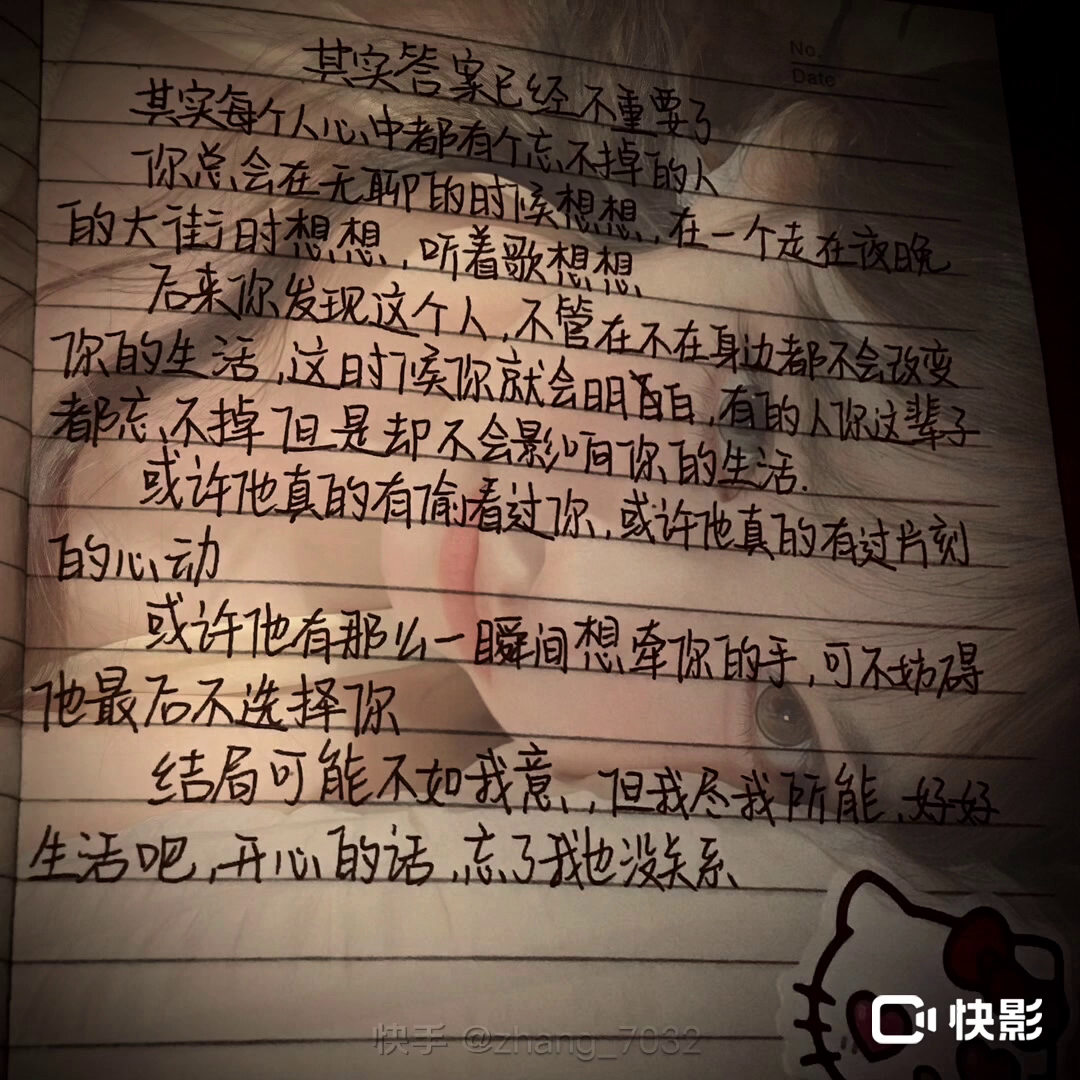 No.
Date
其实答案已经不重要了
其实每个人心中都有个忘不掉的人
你总会在无聊的时候想想，在一个走在夜晚
的大街时想想，听着歌想想
后来你发现这个人，不管在不在身边都不会改变
你的生活，这时候你就会明白，有的人你这辈子
都忘不掉但是却不会影响你的生活.
或许他真的有偷看过你，或许他真的有过片刻
的心动
或许他有那么一瞬间想牵你的手，可不妨碍
他最后不选择你
结局可能不如我意，但我尽我所能，好好
生活吧，开心的话，忘了我也没关系
快影
快手 @zhang_7032